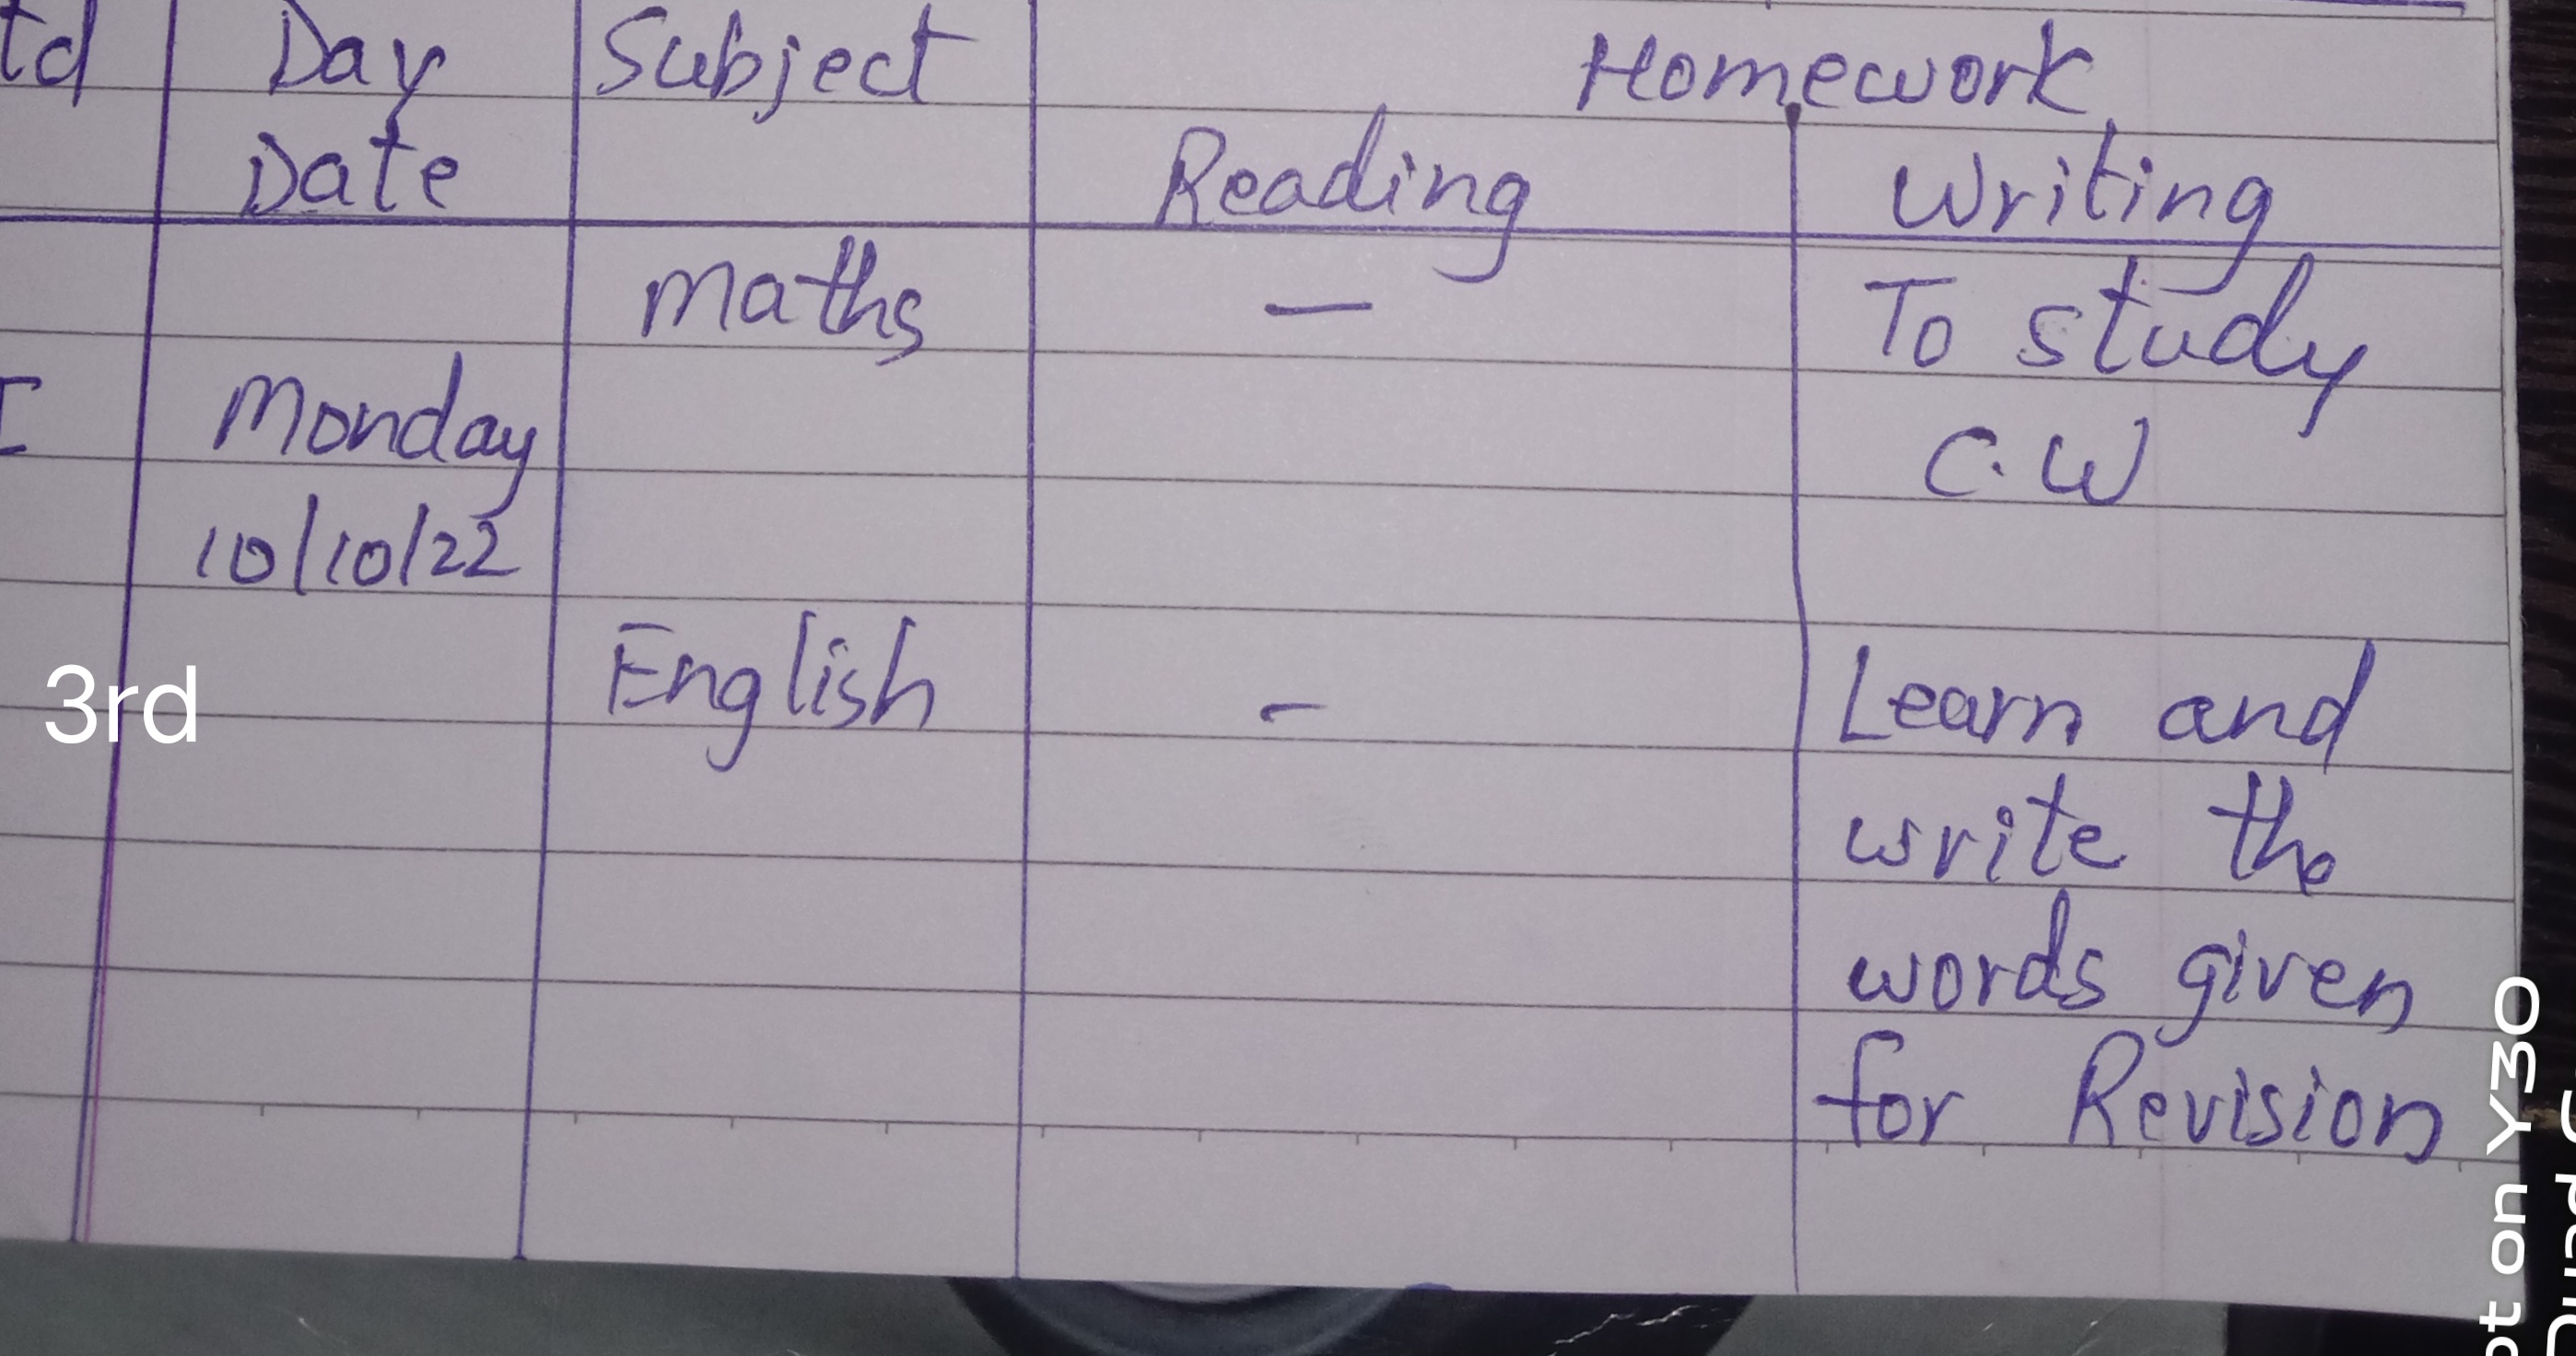 td Day Subject Homework
Date Reading Writing
Maths — To study
I Monday C.W
10/10/22
3rd English - Learn and
write the
words given
for Revision
ot on Y30